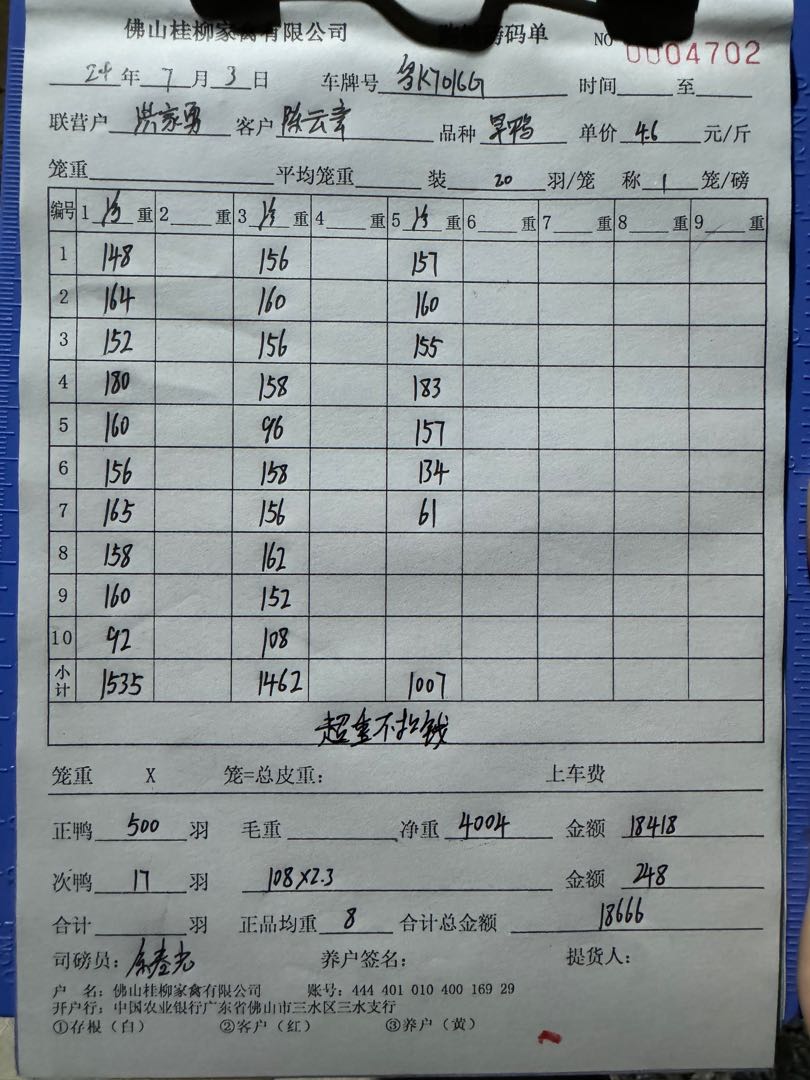 佛山桂柳家禽有限公司 码单 NO 0004702
24年7月3日 车牌号 粤K7016G 时间 至
联营户 洪家勇 客户 陈云章 品种 旱鸭 单价 4.6 元/斤
笼重 平均笼重 装 20 羽/笼 称 1 笼/磅
编号 1 净 重 2 重 3 净 重 4 重 5 净 重 6 重 7 重 8 重 9 重
1 148 156 157
2 164 160 160
3 152 156 155
4 180 158 183
5 160 96 157
6 156 158 134
7 165 156 61
8 158 162
9 160 152
10 92 108
小计 1535 1462 1007
超重不扣钱
笼重 X 笼=总皮重: 上车费
正鸭 500 羽 毛重 净重 4004 金额 18418
次鸭 17 羽 108×2.3 金额 248
合计 羽 正品均重 8 合计总金额 18666
司磅员: 养户签名: 提货人:
户 名: 佛山桂柳家禽有限公司 账号: 444 401 010 400 169 29
开户行: 中国农业银行广东省佛山市三水区三水支行
①存根(白) ②客户(红) ③养户(黄)